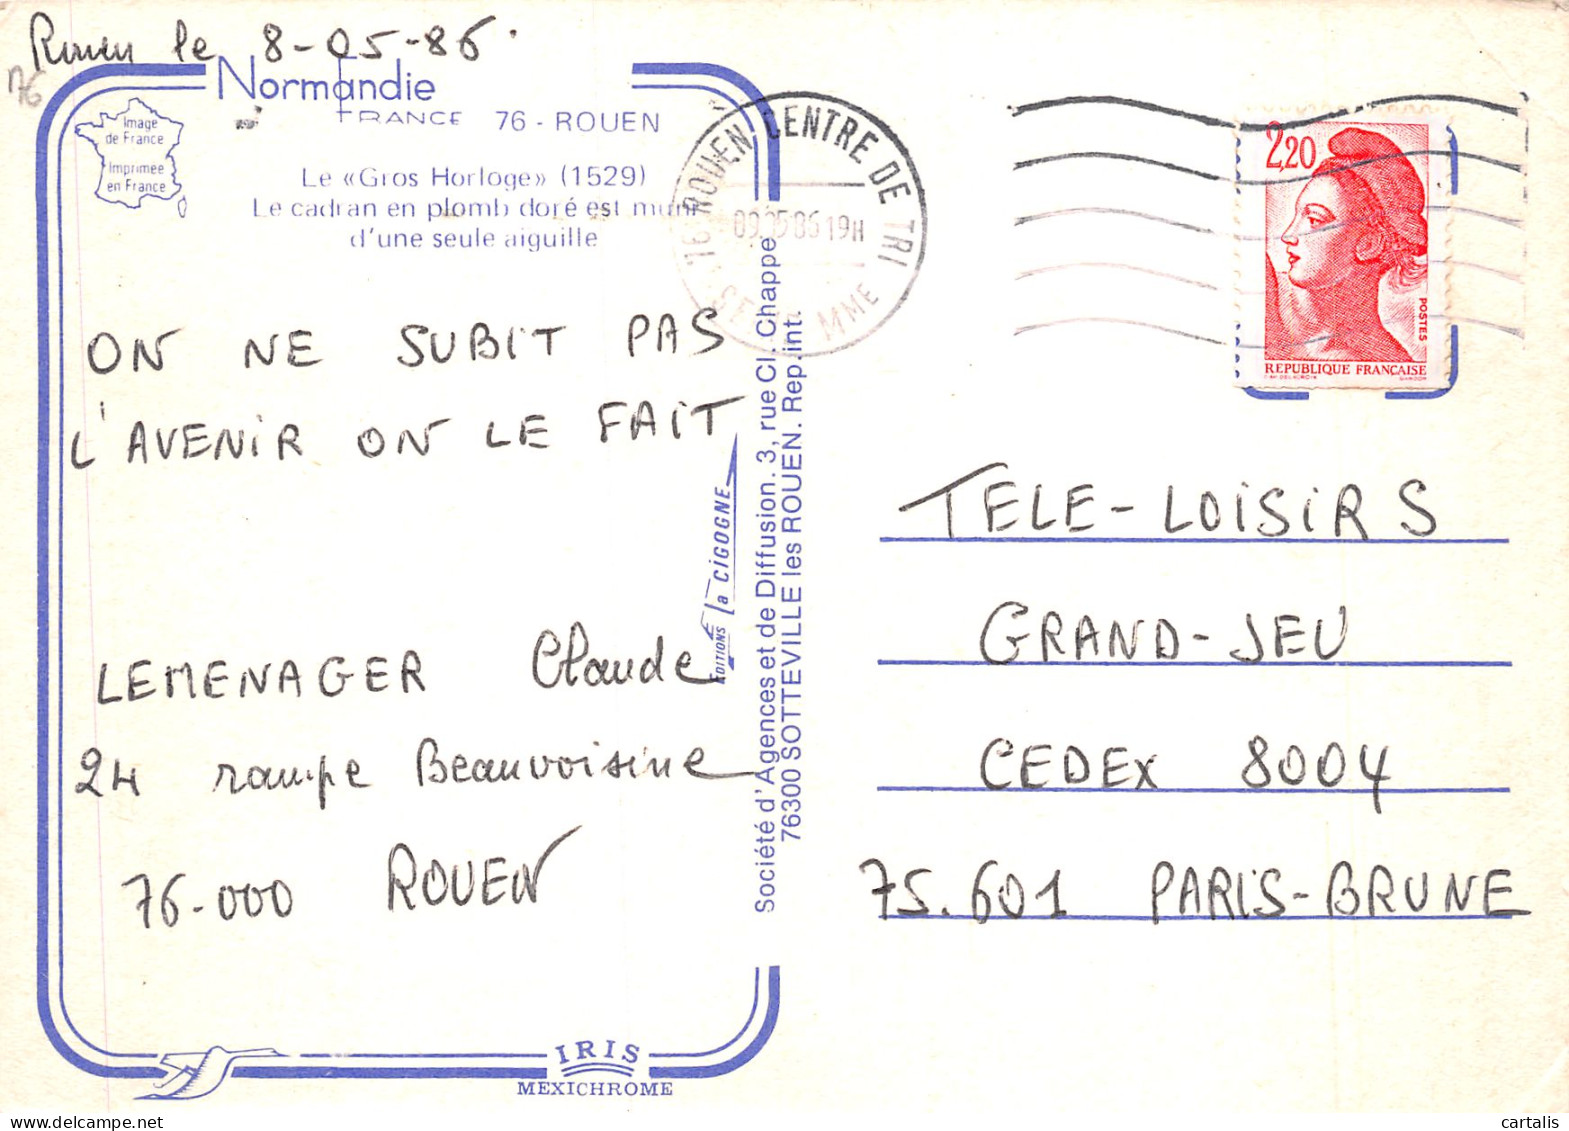 Rouen le 8-05-86.
76
Normandie
FRANCE 76 - ROUEN
Image
de France
Imprimée
en France
Le «Gros Horloge» (1529)
Le cadran en plomb doré est muni
d'une seule aiguille
ON NE SUBIT PAS
L'AVENIR ON LE FAIT
LEMENAGER Claude
24 rampe Beauvoisine
76-000 ROUEN
EDITIONS la CIGOGNE
Société d'Agences et de Diffusion. 3, rue Cl. Chappe
76300 SOTTEVILLE les ROUEN. Rep. int.
IRIS
MEXICHROME
76 ROUEN CENTRE DE TRI
MME
19H
2,20
POSTES
REPUBLIQUE FRANÇAISE
TELE-LOISIRS
GRAND-JEU
CEDEX 8004
75.601 PARIS-BRUNE
cartalis